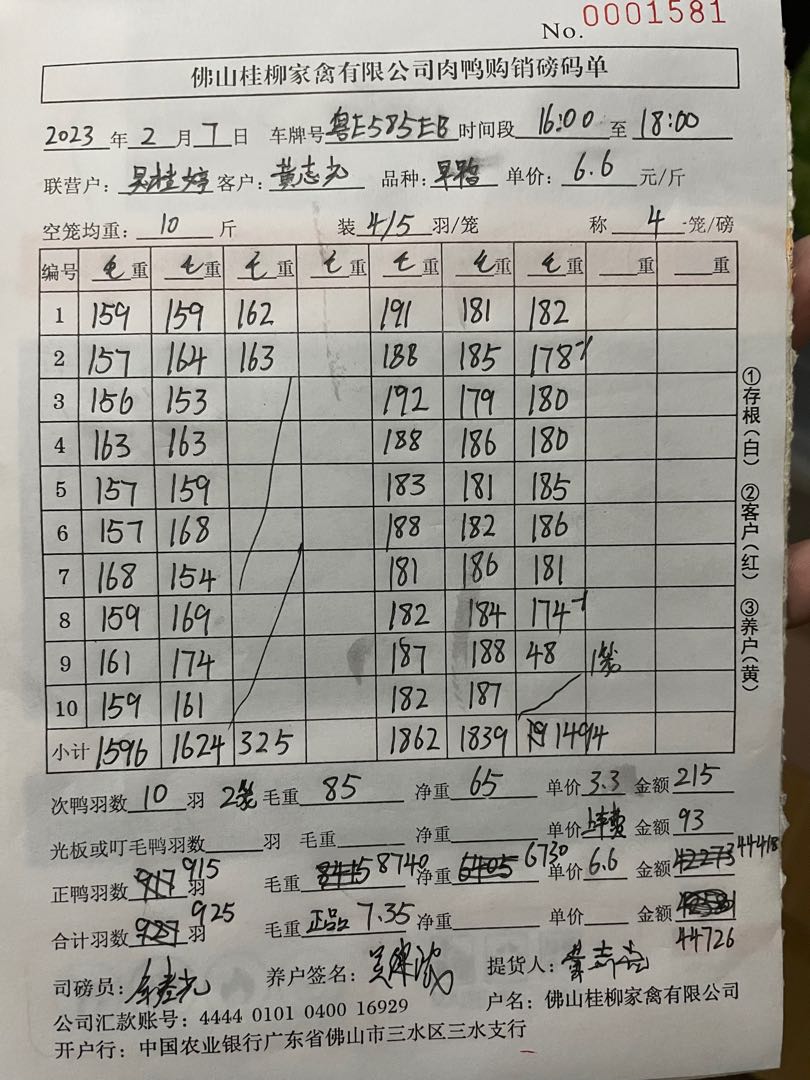 No. 0001581
佛山桂柳家禽有限公司肉鸭购销磅码单
2023 年 2 月 7 日 车牌号 粤E585EB 时间段 16:00 至 18:00
联营户: 吴桂婷 客户: 黄志光 品种: 单价: 6.6 元/斤
空笼均重: 10 斤 装 4/5 羽/笼 称 4 笼/磅
编号 毛重 毛重 毛重 毛重 毛重 毛重 毛重 重 重
1 159 159 162 191 181 182
2 157 164 163 188 185 178-1
3 156 153 192 179 180
4 163 163 188 186 180
5 157 159 183 181 185
6 157 168 188 182 186
7 168 154 181 186 181
8 159 169 182 184 174-1
9 161 174 187 188 48 1笼
10 159 161 182 187
小计 1596 1624 325 1862 1839 1494
次鸭羽数 10 羽 2笼 毛重 85 净重 65 单价 3.3 金额 215
光板或叮毛鸭羽数 羽 毛重 净重 单价 金额 93
正鸭羽数 917 915 羽 毛重 8415 8740 净重 6405 6730 单价 6.6 金额 42273 44418
合计羽数 927 925 羽 毛重 正品 7.35 净重 单价 金额 44726
司磅员: 养户签名: 提货人:
公司汇款账号: 4444 0101 0400 16929 户名: 佛山桂柳家禽有限公司
开户行: 中国农业银行广东省佛山市三水区三水支行
①存根(白) ②客户(红) ③养户(黄)